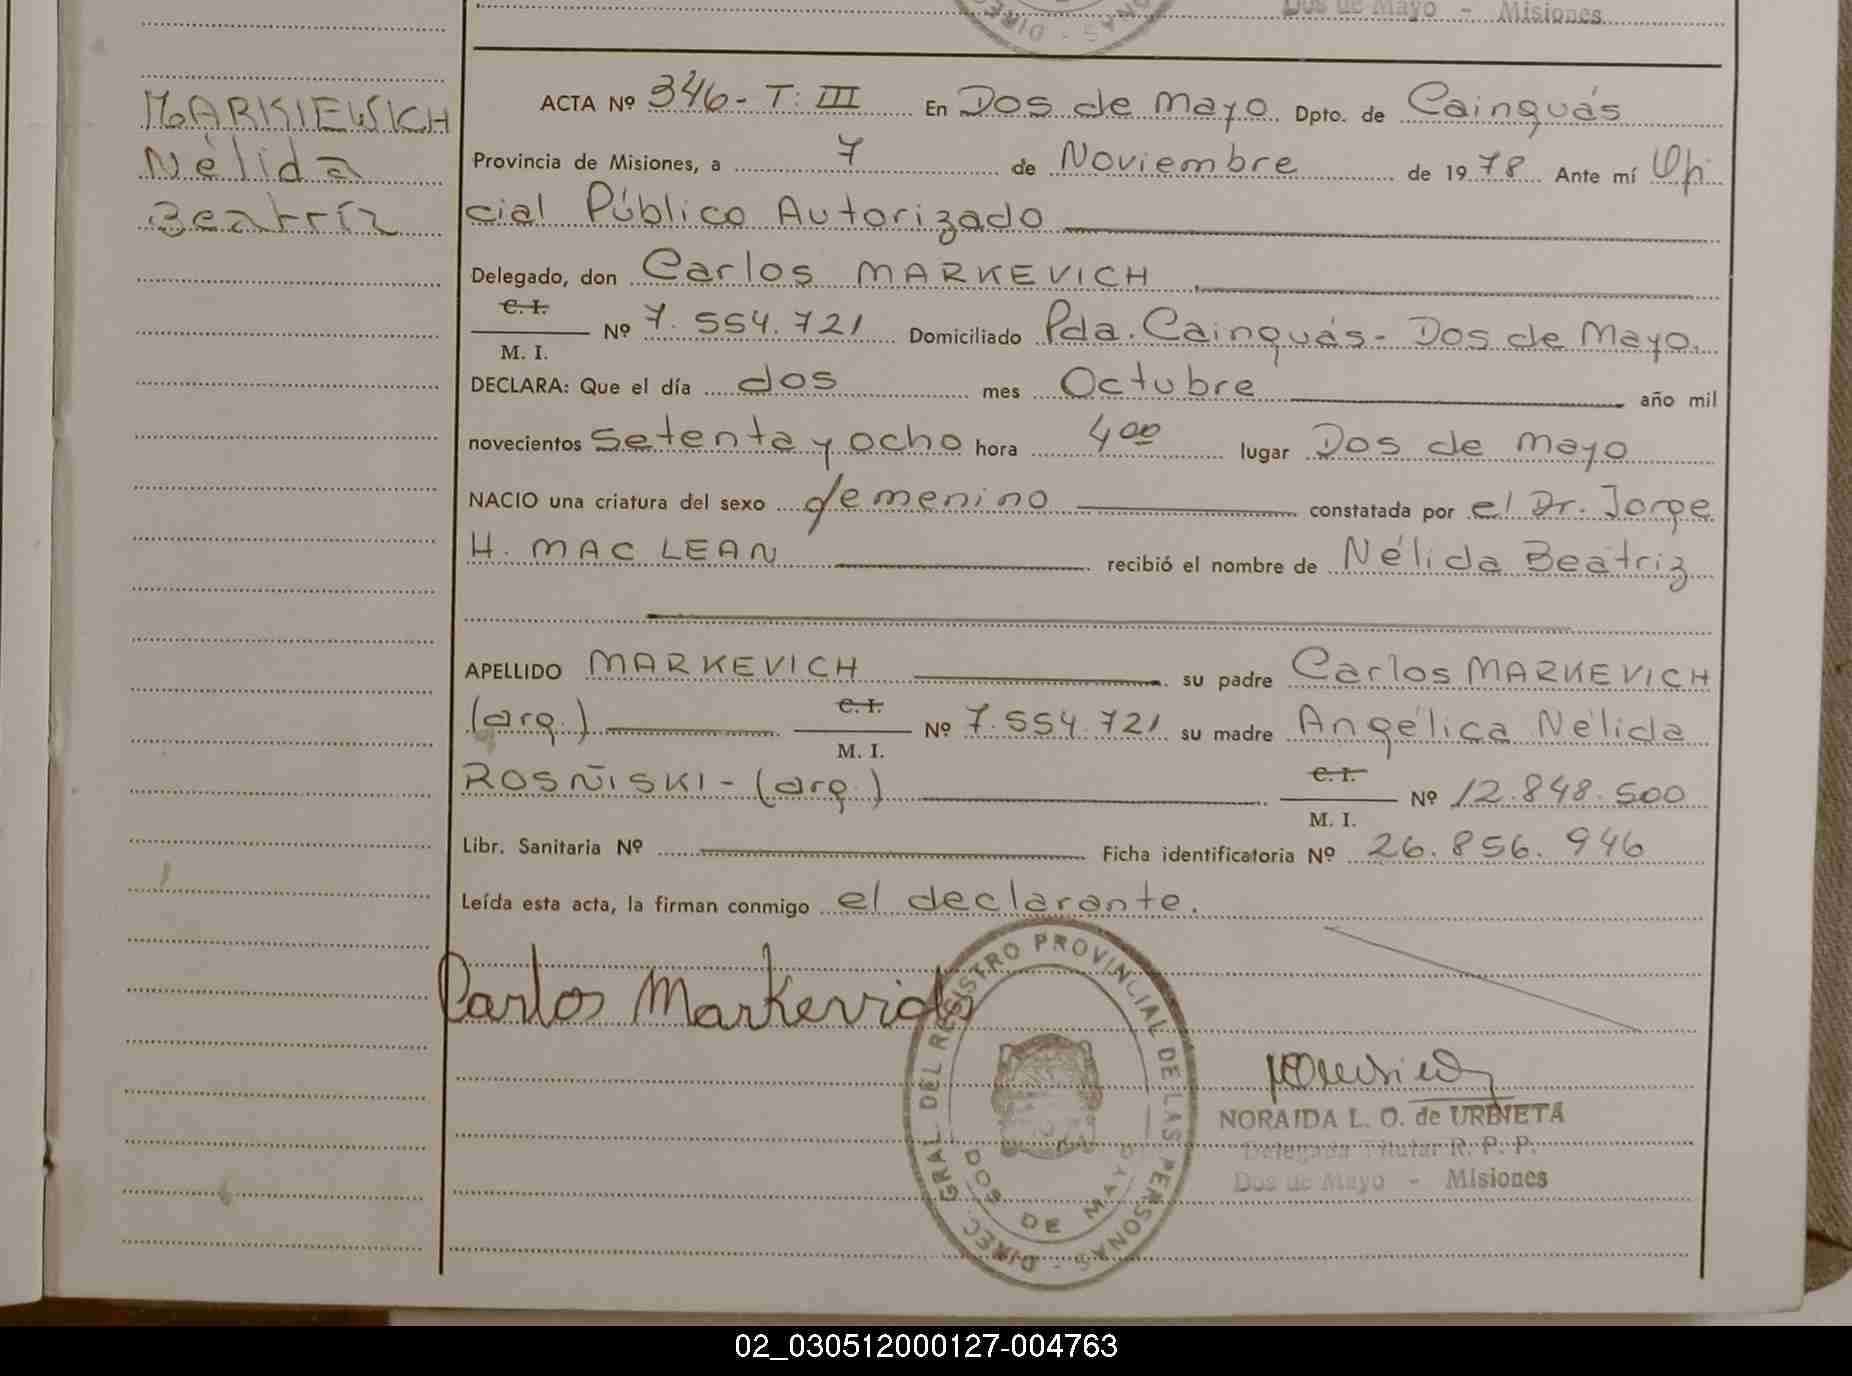 Dos de Mayo - Misiones
MARKIEWICH
Nélida
Beatríz
ACTA Nº 346 - T: III En Dos de Mayo Dpto. de Cainguás
Provincia de Misiones, a 7 de Noviembre de 1978 Ante mí Ofi
cial Público Autorizado
Delegado, don Carlos MARKEVICH
C. I.
M. I. Nº 7.554.721 Domiciliado Pda. Cainguás - Dos de Mayo.
DECLARA: Que el día dos mes Octubre año mil
novecientos setenta y ocho hora 4 00 lugar Dos de Mayo
NACIO una criatura del sexo femenino constatada por el Dr. Jorge
H. MAC LEAN recibió el nombre de Nélida Beatriz
APELLIDO MARKEVICH su padre Carlos MARKEVICH
(arg.) C. I. M. I. Nº 7.554.721 su madre Angélica Nélida
ROSÑISKI - (arg.) C. I. M. I. Nº 12.848.500
Libr. Sanitaria Nº Ficha identificatoria Nº 26.856.946
Leída esta acta, la firman conmigo el declarante.
Carlos Markevich
DIREC. GRAL. DEL REGISTRO PROVINCIAL DE LAS PERSONAS
DOS DE MAYO
NORAIDA L. O. de URBIETA
Delegada Titular R. P. P.
Dos de Mayo - Misiones
02_030512000127-004763